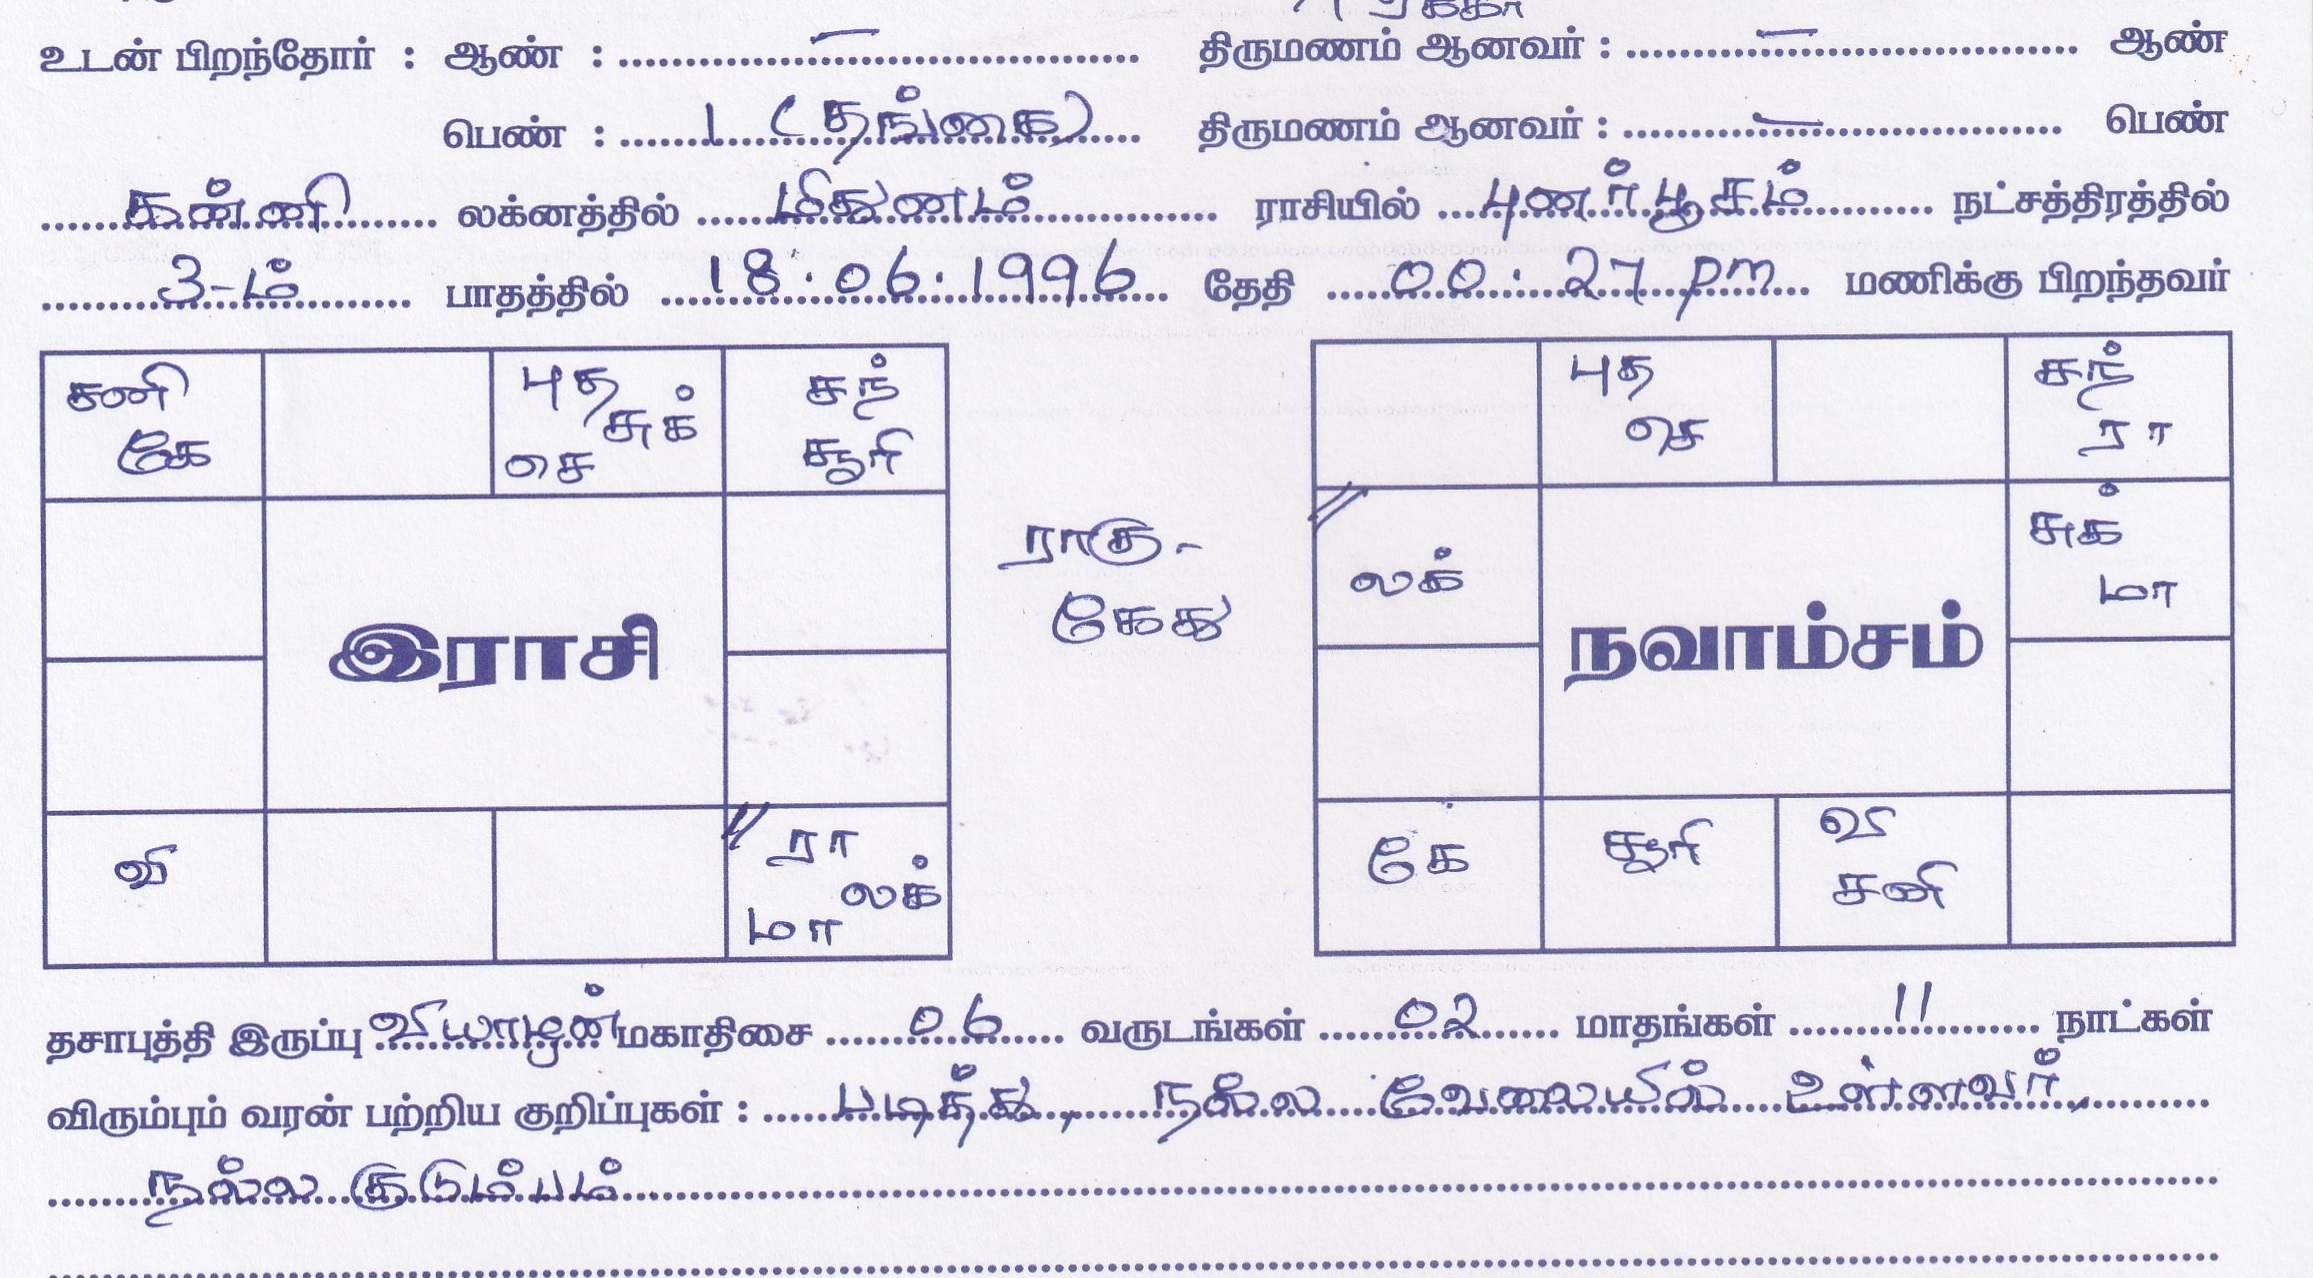 உடன் பிறந்தோர் : ஆண் : ........ — ........ திருமணம் ஆனவர் : ........ — ........ ஆண்
பெண் : ........ 1 (தங்கை) ........ திருமணம் ஆனவர் : ........ — ........ பெண்
கன்னி லக்னத்தில் மிதுனம் ராசியில் புனர்பூசம் நட்சத்திரத்தில்
3-ம் பாதத்தில் 18.06.1996 தேதி 00:27 pm மணிக்கு பிறந்தவர்
சனி கே
புத சுக் செ
சந் சூரி
இராசி
வி
ரா லக் மா
ராகு -
கேது
புத செ
சந் ரா
லக்
சுக் மா
நவாம்சம்
கே
சூரி
வி சனி
தசாபுத்தி இருப்பு வியாழன் மகாதிசை 06 வருடங்கள் 02 மாதங்கள் 11 நாட்கள்
விரும்பும் வரன் பற்றிய குறிப்புகள் : படித்து, நல்ல வேலையில் உள்ளவர்,
நல்ல குடும்பம்